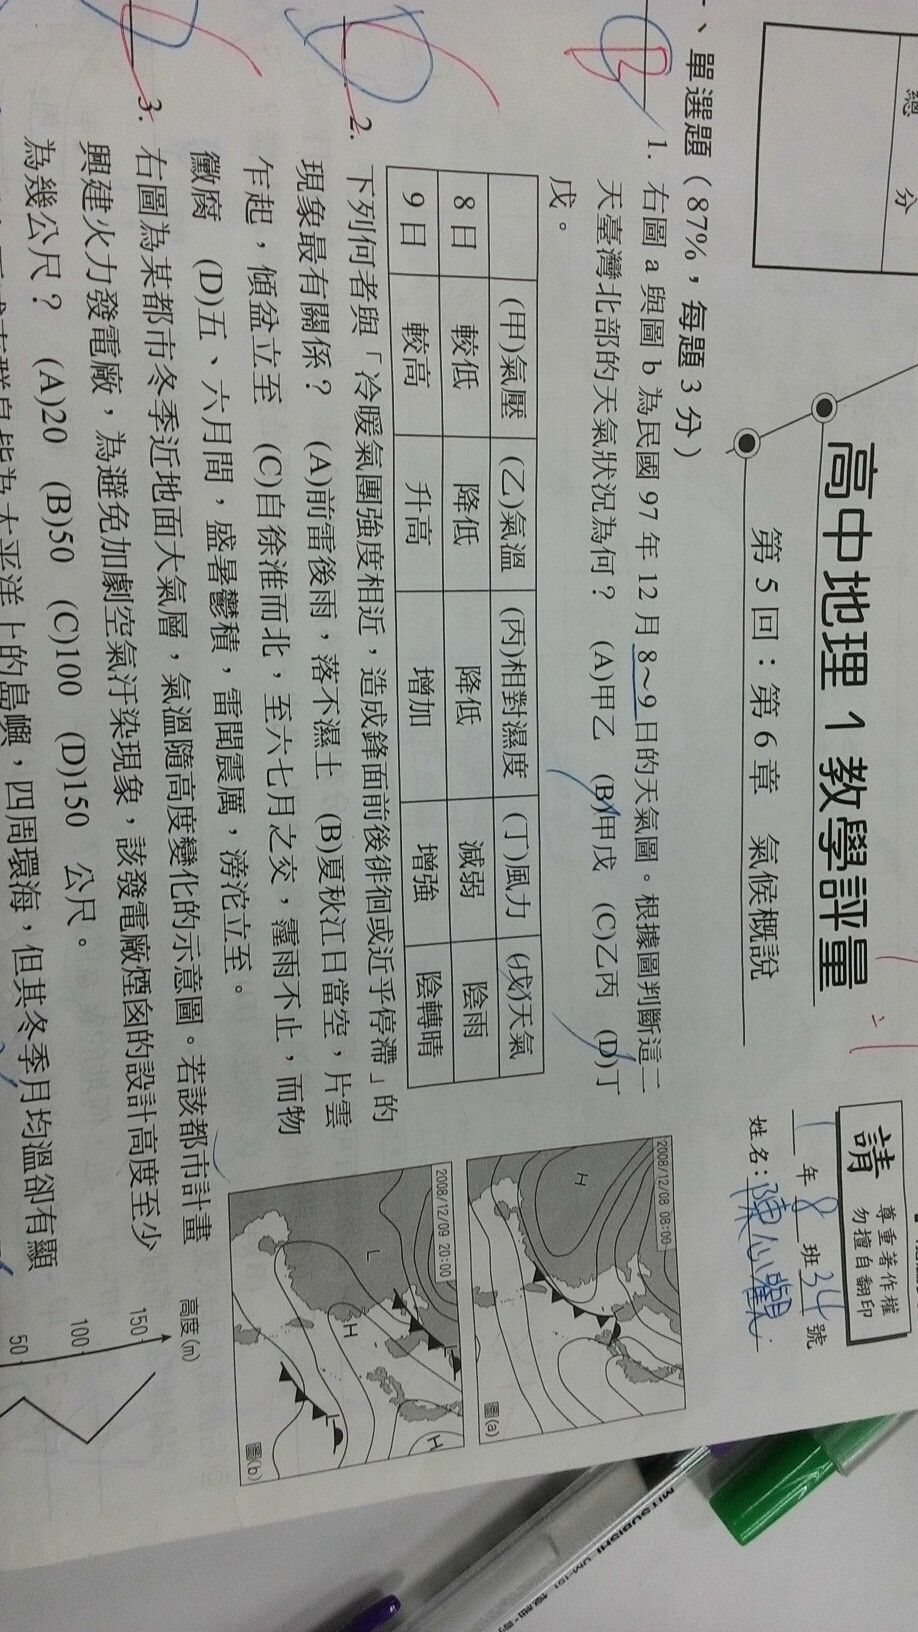 總分
高中地理 1 教學評量
第 5 回：第 6 章　氣候概說
請 尊重著作權 勿擅自翻印
年 8 班 34 號
姓名：
一、單選題（87%，每題 3 分）
1. 右圖 a 與圖 b 為民國 97 年 12 月 8～9 日的天氣圖。根據圖判斷這二
天臺灣北部的天氣狀況為何？ (A)甲乙 (B)甲戊 (C)乙丙 (D)丁
戊。
(甲)氣壓 (乙)氣溫 (丙)相對濕度 (丁)風力 (戊)天氣
8 日 較低 降低 降低 減弱 陰雨
9 日 較高 升高 增加 增強 陰轉晴
2008/12/08 08:00
H
圖(a)
2008/12/09 20:00
L
H
H
圖(b)
2. 下列何者與「冷暖氣團強度相近，造成鋒面前後徘徊或近乎停滯」的
現象最有關係？ (A)前雷後雨，落不濕土 (B)夏秋江日當空，片雲
乍起，傾盆立至 (C)自徐淮而北，至六七月之交，霪雨不止，而物
黴腐 (D)五、六月間，盛暑鬱積，雷聞震厲，滂沱立至。
3. 右圖為某都市冬季近地面大氣層，氣溫隨高度變化的示意圖。若該都市計畫
興建火力發電廠，為避免加劇空氣汙染現象，該發電廠煙囪的設計高度至少
為幾公尺？ (A)20 (B)50 (C)100 (D)150 公尺。
高度(m)
150
100
50
太平洋上的島嶼，四周環海，但其冬季月均溫卻有顯
MITSUBISHI